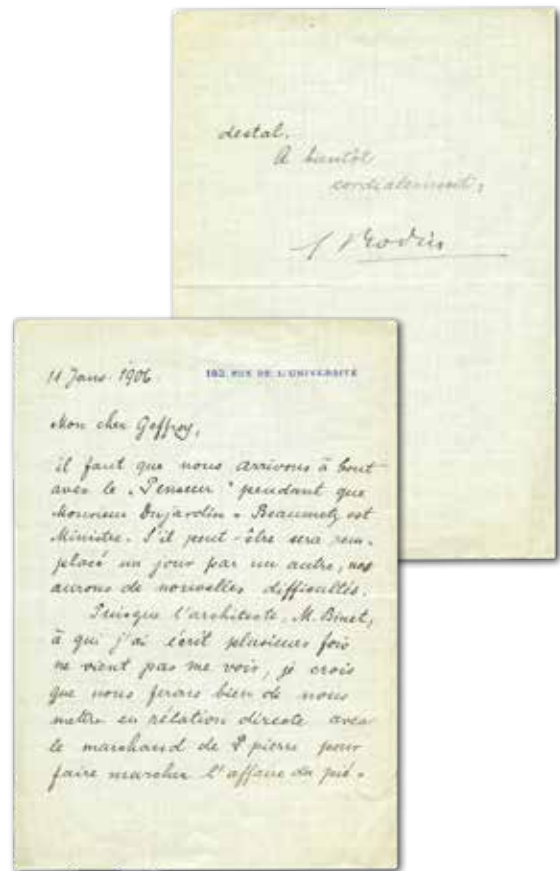 11 Janv. 1906.
182, RUE DE L'UNIVERSITÉ
Mon cher Geffroy,
il faut que nous arrivons à bout
avec le „Penseur" pendant que
Monsieur Dujardin-Beaumetz est
Ministre. S'il peut-être sera rem-
placé un jour par un autre, nos
aurons de nouvelles difficultés.
Puisque l'architecte, M. Binet,
à qui j'ai écrit plusieurs fois
ne vient pas me voir, je crois
que nous ferons bien de nous
mettre en rélation directe avec
le marchand de pierre pour
faire marcher l'affaire du pié-
destal.
A bientôt
cordialement,
Rodin